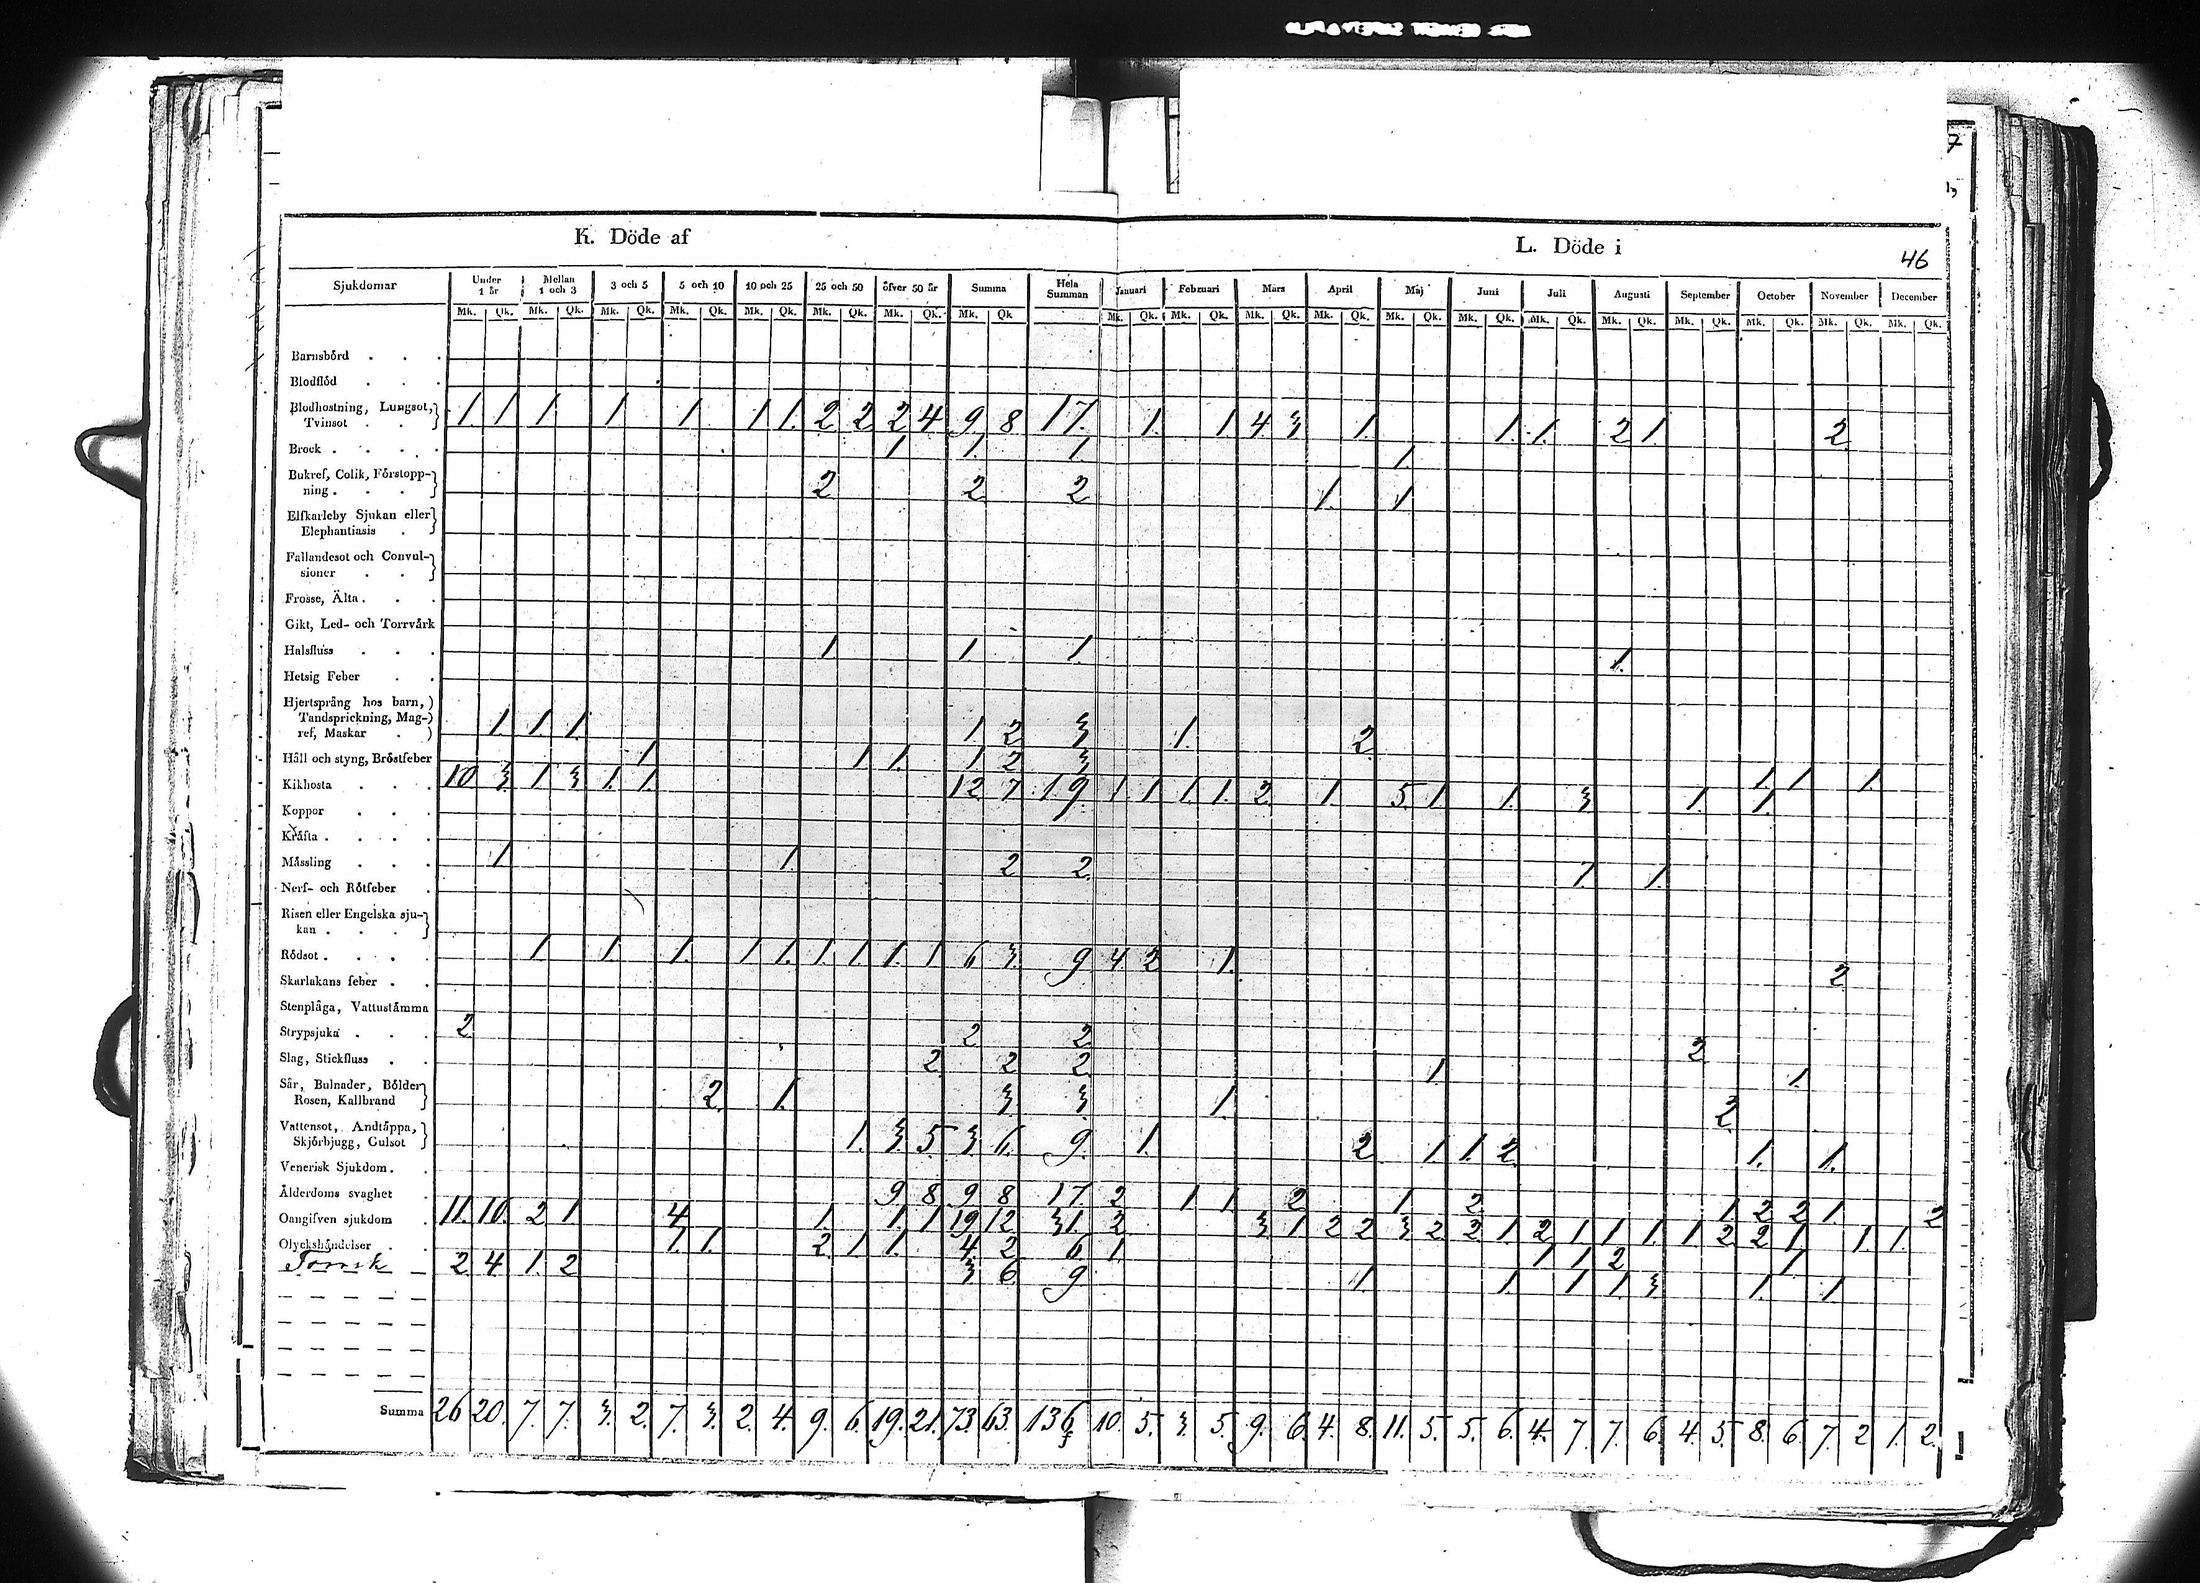 K. Döde af
L. Döde i
46
Sjukdomar | Under 1 år | Mellan 1 och 3 | 3 och 5 | 5 och 10 | 10 och 25 | 25 och 50 | öfver 50 år | Summa | Hela Summan | Januari | Februari | Mars | April | Maj | Juni | Juli | Augusti | September | October | November | December
Mk. Qk. Mk. Qk. Mk. Qk. Mk. Qk. Mk. Qk. Mk. Qk. Mk. Qk. Mk. Qk Mk. Qk. Mk. Qk. Mk. Qk. Mk. Qk. Mk. Qk. Mk. Qk. Mk. Qk. Mk. Qk. Mk. Qk. Mk. Qk. Mk. Qk. Mk. Qk.
Barnsbörd . . .
Blodflöd . . .
Blodhostning, Lungsot,
Tvinsot . . 1. 1 1 1 1 1 1. 2 2 2 4 9. 8 17. 1. 1. 4 3 1. 1. 1. 2 1. 2
Brock . . . . . 1 1. 1 1.
Bukref, Colik, Förstopp-
ning . . . 2 2 2 1. 1
Elfkarleby Sjukan eller
Elephantiasis .
Fallandesot och Convul-
sioner . .
Frosse, Älta . . .
Gikt, Led- och Torrvärk
Halsfluss . . . 1. 1. 1. 1.
Hetsig Feber . .
Hjertsprång hos barn,
Tandsprickning, Mag-
ref, Maskar . 1 1. 1. 1 2 3 1. 2
Håll och styng, Bröstfeber 1 1 1. 1 2 3 1. 1. 1
Kikhosta . . . 10 3. 1 3 1. 1. 12 7 19. 1 1 1. 1. 2 1. 5. 1. 1. 3 1. 1.
Koppor . . .
Kräfta . . . .
Mässling . . . 1 1. 2 2 1 1.
Nerf- och Rötfeber .
Risen eller Engelska sju-
kan . . . .
Rödsot . . . . 1 1. 1. 1 1. 1. 1. 1. 1 6 3. 9 4 2 1. 2
Skarlakans feber . .
Stenplåga, Vattustämma
Strypsjuka . . . 2 2 2 2
Slag, Stickfluss . . 2 2 2 1. 1.
Sår, Bulnader, Bölder
Rosen, Kallbrand 2 1. 3 3 1. 2
Vattensot, Andtäppa,
Skjörbjugg, Gulsot 1. 3. 5. 3 6. 9. 1. 2 1 1. 2 1. 1.
Venerisk Sjukdom . .
Ålderdoms svaghet . 9 8 9 8 17 2 1 1 2 1 2 1 2 2 1 2
Oangifven sjukdom . 11. 10. 2 1 4 1. 1. 1 19 12 31. 2 3 1 2 2 3 2 2 1 2 1 1 1. 1 2 2 1 1. 1.
Olyckshändelser . 1. 1. 2 1 1. 4 2 6 1 1 1 2 1
Torrsk 2 4 1. 2 3 6 9 1 1 1 1 3 1 1.
Summa 26 20. 7. 7. 3. 2. 7. 3. 2. 4. 9. 6. 19. 21. 73. 63. 136 10. 5. 3. 5. 9. 6. 4. 8. 11. 5. 5. 6. 4. 7. 7. 6. 4. 5. 8. 6. 7. 2 1. 2.